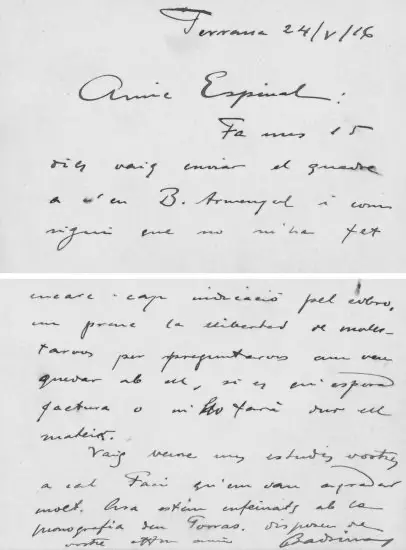 Terrassa 24/V/16
Amic Espinal:
Fa uns 15
dies vaig enviar el quadre
a n'en B. Armengol i com
sigui que no m'ha fet
encare cap indicació pel cobro,
em prenc la llibertad de moles-
tarvos per preguntarvos com van
quedar ab ell, si es qu'espera
factura o m'ho farà dur ell
mateix.
Vaig veure uns estudis vostres
a cal Faci qu'em van agradar
molt. Ara estàm enfeinats ab la
monografia den Torras. Disposeu de
vostre amic Badrinas